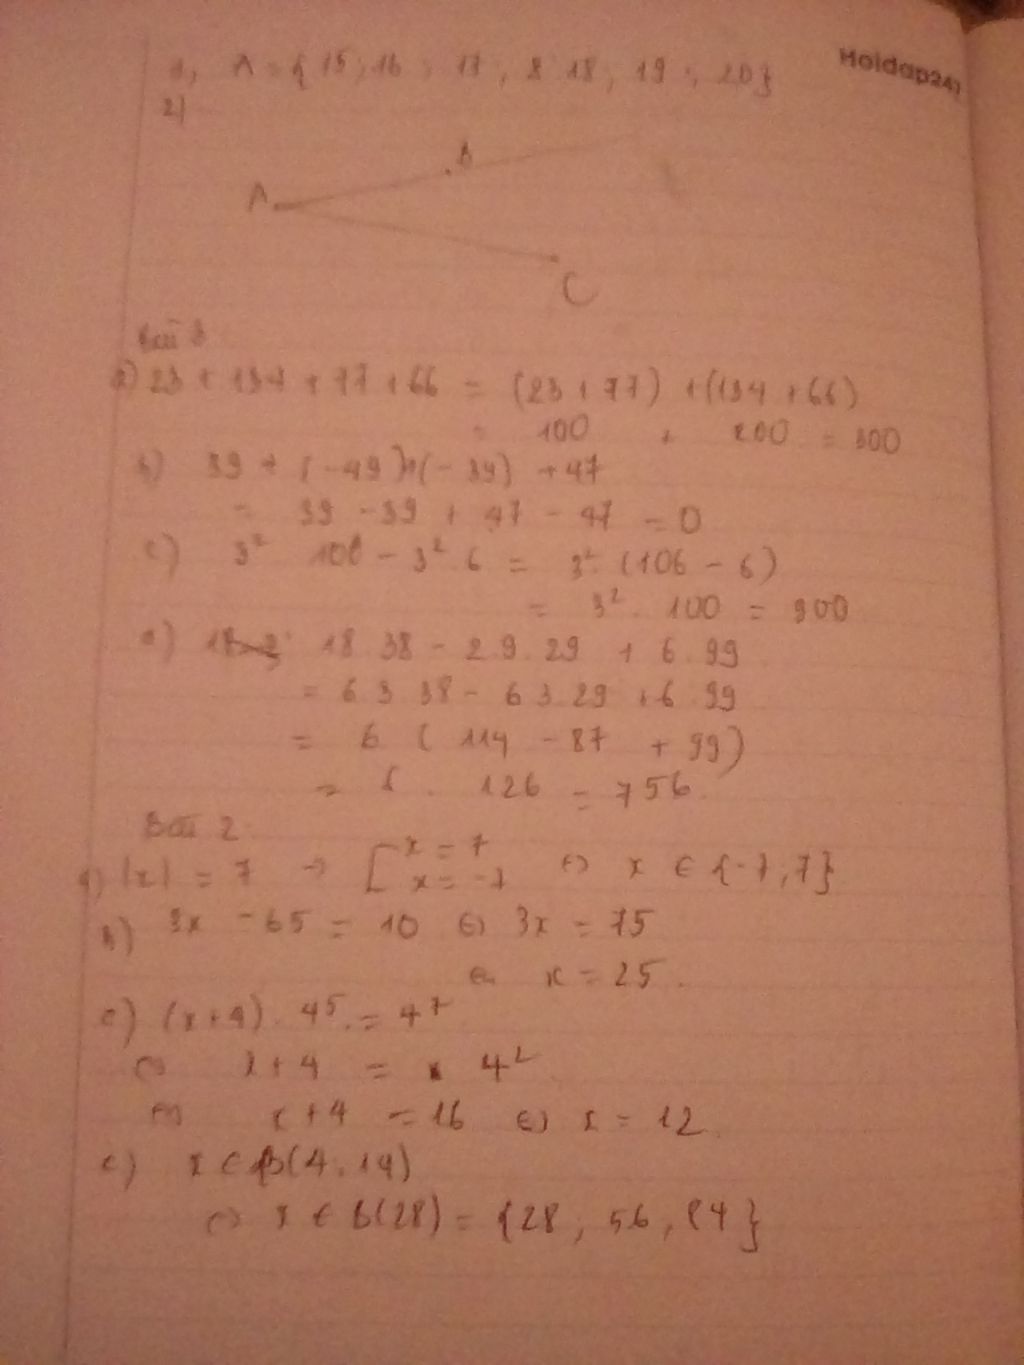 1, A = { 15 ; 16 ; 17 ; 18 ; 19 ; 20 }
Hoidap247
2)
B
A
C
Bài 3
a) 23 + 134 + 77 + 66 = (23 + 77) + (134 + 66)
= 100 + 200 = 300
b) 39 + (-49) + (-39) + 47
= 39 - 39 + 47 - 47 = 0
c) 3² 106 - 3² . 6 = 3² (106 - 6)
= 3² . 100 = 900
18 . 38 - 2 . 9 . 29 + 6 . 99
= 6 . 3 . 38 - 6 . 3 . 29 + 6 . 99
= 6 ( 114 - 87 + 99)
= 6 . 126 = 756.
Bài 2.
a) |x| = 7 → [ x = 7 ⇔ x ∈ {-7 ; 7}
x = -7
b) 3x - 65 = 10 ⇔ 3x = 75
⇔ x = 25.
c) (x+4) . 4⁵ = 4⁷
⇔ x + 4 = 4²
⇔ x + 4 = 16 ⇔ x = 12
x ∈ B(4, 14)
⇔ x ∈ B(28) = {28 ; 56 , 84 }